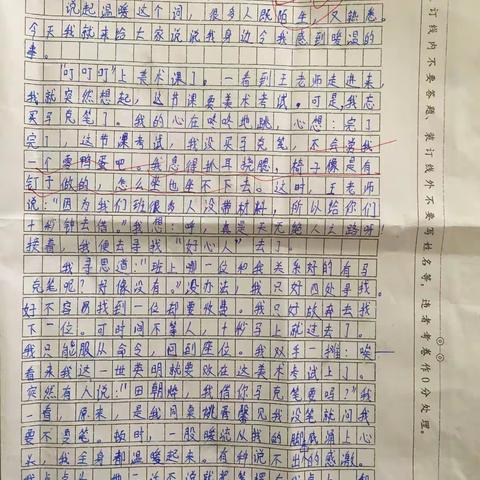 说起温暖这个词，很多人既陌生，又熟悉。
今天我就来给大家说说我身边令我感到暖温的
事。
“叮叮叮”上美术课了。一看到王老师走进来，
我就突然想起，这节课要美术考试。可是我忘
买马克笔了。我的心在咚咚地跳，心想：完了
完了，这节课考试，我没买马克笔，不会给我
一个零鸭蛋吧。我急得抓耳挠腮，椅子像是有
钉子做的，怎么坐也坐不下去。这时，王老师
说：“因为我们班很多人没带材料，所以给你们
十秒钟去借。”我想：呼，真是天无绝人之路呀！
接着，我便去寻找“好心人”去了。
我寻思道：“班上哪一位和我关系好的有马
克笔呢？好像没有。”没办法，我只好四处寻找。
好不容易找到一位却要收费。我只好放弃去找
下一位。可时间不等人，十秒马上就过去了。
我只能服从命令，回到座位。我双手一摊：唉
看来我这一世英明就要败在这美术考试上了。
突然有人说：“田朝烨，我借你马克笔要吗？”我
一看，原来，是我同桌 见我没笔就问我
要不要笔。顿时，一股暖流从我的脚底涌上心
头，我全身都温暖起来。有种说不出的感激。